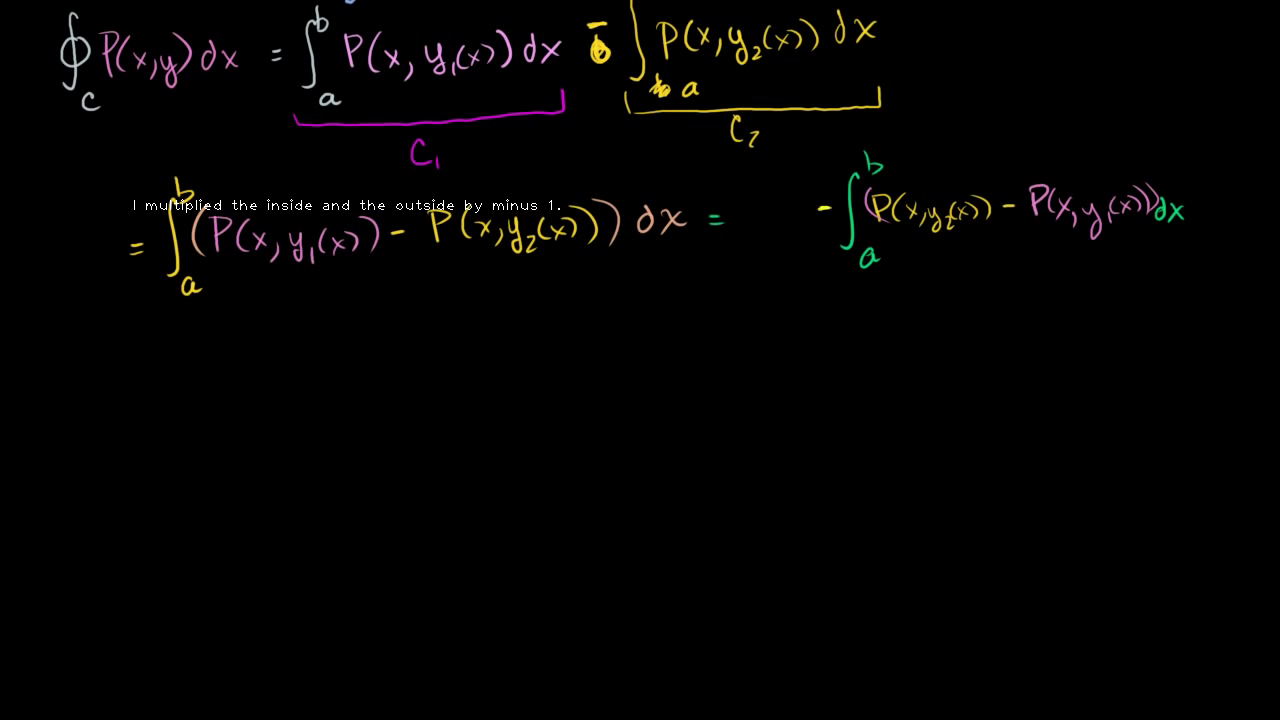 ∮_C P(x,y) dx = ∫_a^b P(x, y₁(x)) dx − ∫_a P(x, y₂(x)) dx
C₁ C₂
I multiplied the inside and the outside by minus 1.
= ∫_a^b (P(x, y₁(x)) − P(x, y₂(x))) dx = − ∫_a^b (P(x, y₂(x)) − P(x, y₁(x))) dx